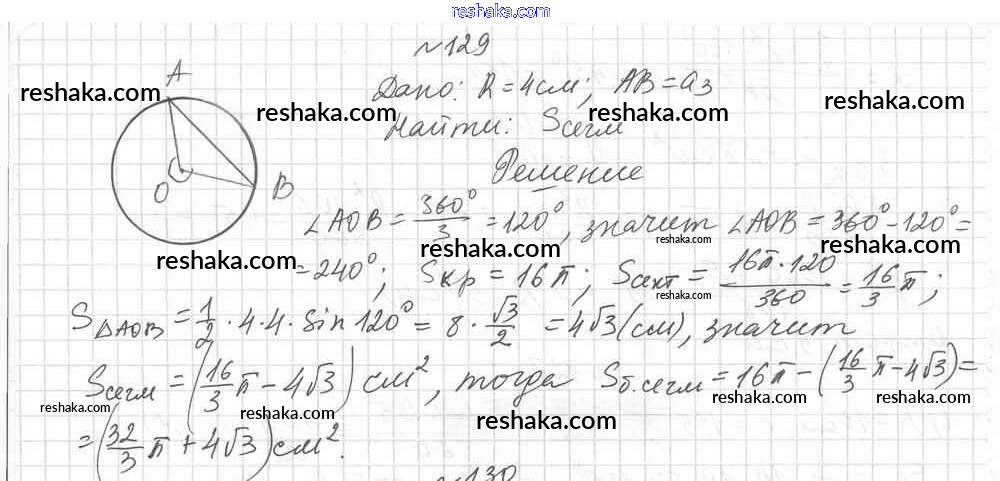 reshaka.com
№129
A
Дано: R = 4см; AB = a₃
reshaka.com
reshaka.com
reshaka.com
Найти: Sсегм
Решение
O
B
∠AOB = 360°/3 = 120°, значит ∠AOB = 360° - 120° =
reshaka.com
reshaka.com
reshaka.com
reshaka.com
= 240°; Sкр = 16π; Sсект = 16π·120/360 = 16/3 π;
reshaka.com
S△AOB = 1/2 · 4 · 4 · sin 120° = 8 · √3/2 = 4√3 (см), значит
reshaka.com
Sсегм = (16/3 π - 4√3) см², тогда Sб.сегм = 16π - (16/3 π - 4√3) =
reshaka.com
reshaka.com
reshaka.com
reshaka.com
reshaka.com
= (32/3 π + 4√3) см².
№130